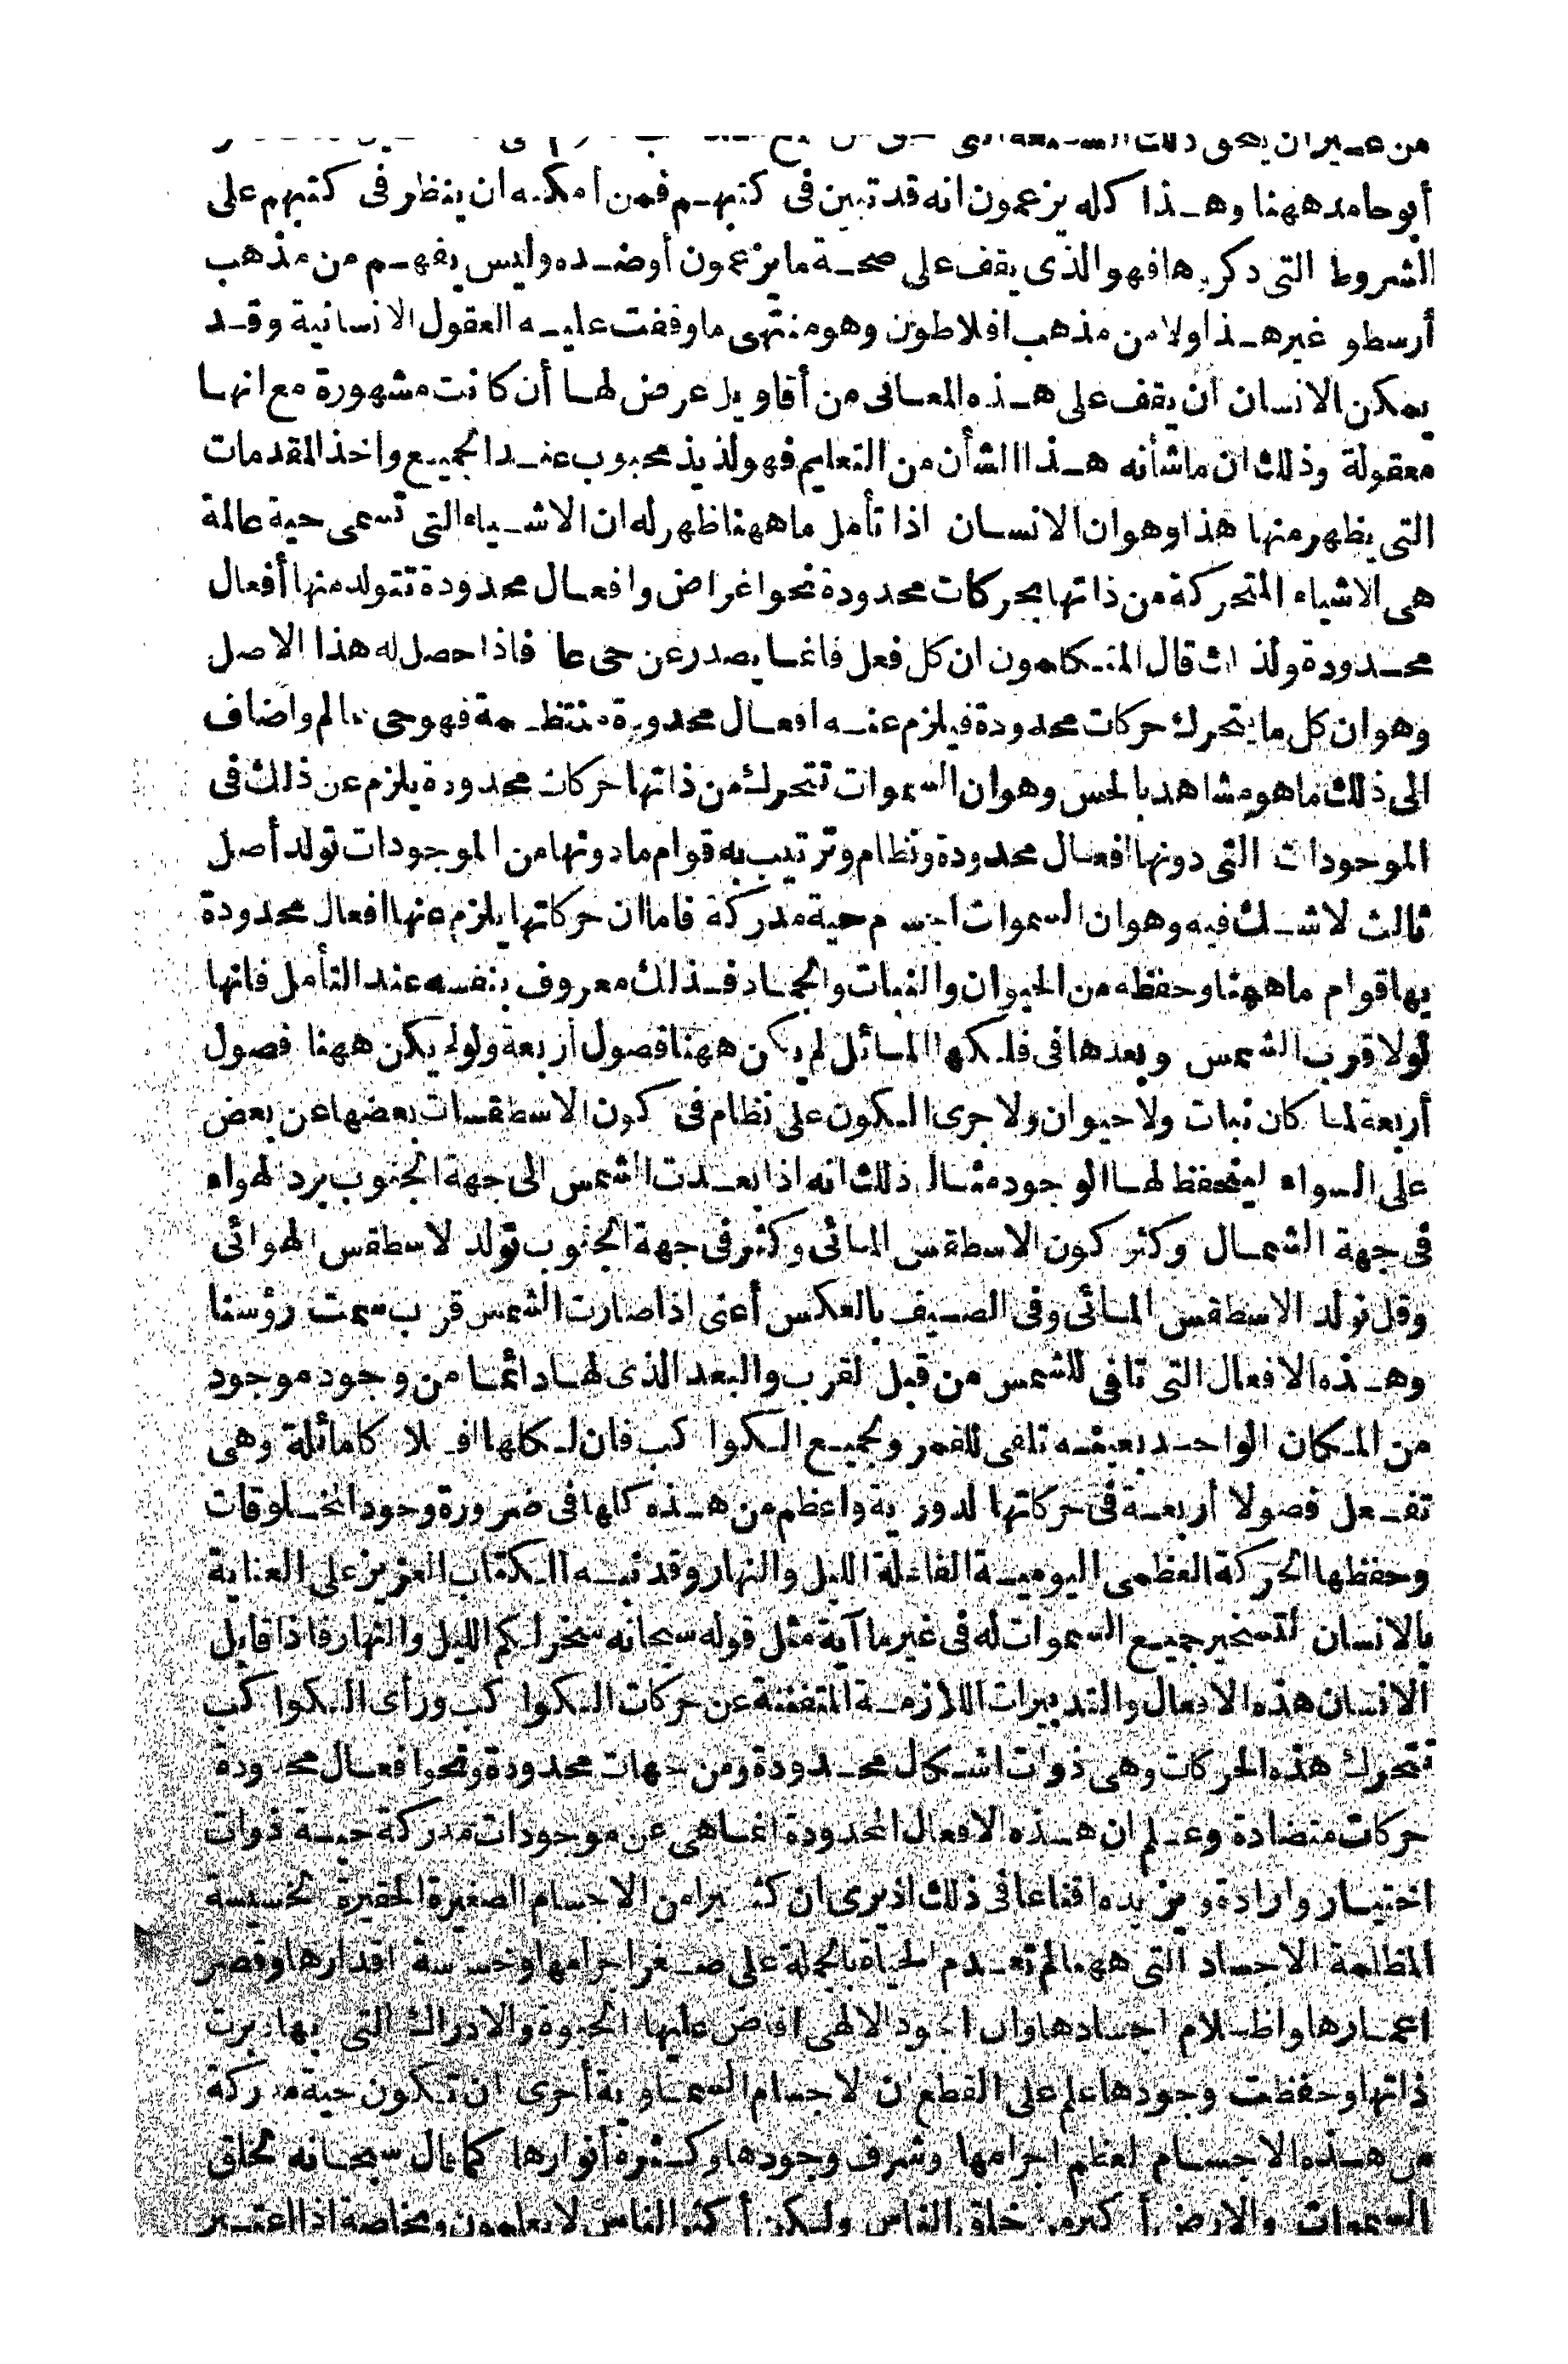 من غير ان يلحق ذلك
أبو حامد ههنا وهذا كله يزعمون انه قد تبين فى كتبهم فمن أمكنه ان ينظر فى كتبهم على
الشروط التى ذكروها فهو الذى يقف على صحة ما يزعمون أو ضده وليس يفهم من مذهب
أرسطو غير هذا ولا من مذهب افلاطون وهو منتهى ما وقفت عليه العقول الانسانية وقد
يمكن الانسان أن يقف على هذه المعانى من أقاويل عرض لها أن كانت مشهورة مع انها
معقولة وذلك ان ما شأنه هذا الشأن من التعليم فهو لذيذ محبوب عند الجميع واخذ المقدمات
التى يظهر منها هذا وهو ان الانسان اذا تأمل ما ههنا ظهر له ان الاشياء التى تسمى حية عالمة
هى الاشياء المتحركة من ذاتها بحركات محدودة نحو اغراض وافعال محدودة تتولد منها أفعال
محدودة ولذلك قال المتكلمون ان كل فعل فانما يصدر عن حى عالم فاذا حصل له هذا الاصل
وهو ان كل ما يتحرك حركات محدودة فيلزم عنه افعال محدودة منتظمة فهو حى عالم واضاف
الى ذلك ما هو مشاهد بالحس وهو ان السموات تتحرك من ذاتها حركات محدودة يلزم عن ذلك فى
الموجودات التى دونها افعال محدودة ونظام وترتيب به قوام ما دونها من الموجودات تولد أصل
ثالث لا شك فيه وهو ان السموات اجسام حية مدركة فاما ان حركاتها يلزم عنها افعال محدودة
بها قوام ما ههنا وحفظه من الحيوان والنبات والجماد فذلك معروف بنفسه عند التأمل فانها
لولا قرب الشمس وبعدها فى فلكها المائل لم يكن ههنا فصول أربعة ولو لم يكن ههنا فصول
أربعة لما كان نبات ولا حيوان ولا جرى الكون على نظام فى كون الاسطقسات بعضها عن بعض
على السواء لينحفظ لها الوجود مثال ذلك انه اذا بعدت الشمس الى جهة الجنوب برد الهواء
فى جهة الشمال وكثر كون الاسطقس المائى وكثر فى جهة الجنوب تولد الاسطقس الهوائى
وقل تولد الاسطقس المائى وفى الصيف بالعكس أعنى اذا صارت الشمس قرب سمت رؤسنا
وهذه الافعال التى تلفى للشمس من قبل القرب والبعد الذى لها دائما من وجود موجود
من المكان الواحد بعينه تلفى للقمر ولجميع الكواكب فان لكلها افلاكا مائلة وهى
تفعل فصولا أربعة فى حركاتها الدورية واعظم من هذه كلها فى ضرورة وجود المخلوقات
وحفظها الحركة العظمى اليومية الفاعلة الليل والنهار وقد نبه الكتاب العزيز على العناية
بالانسان لتسخير جميع السموات له فى غير ما آية مثل قوله سبحانه سخر لكم الليل والنهار فاذا قابل
الانسان هذه الافعال والتدبيرات اللازمة المتقنة عن حركات الكواكب ورأى الكواكب
تتحرك هذه الحركات وهى ذوات اشكال محدودة ومن جهات محدودة ونحو افعال محدودة
حركات متضادة وعلم ان هذه الافعال المحدودة انما هى عن موجودات مدركة حية ذوات
اختيار وارادة ويزيده اقناعا فى ذلك اذ يرى ان كثيرا من الاجسام الصغيرة الحقيرة الخسيسة
المظلمة الاجساد التى ههنا لم تعدم الحياة بالجملة على صغر اجرامها وخساسة اقدارها وقصر
اعمارها واظلام اجسادها وان الجود الالهى افاض عليها الحيوة والادراك التى بها دبرت
ذاتها وحفظت وجودها علم على القطع ان الاجسام السماوية أحرى ان تكون حية مدركة
من هذه الاجسام لعظم اجرامها وشرف وجودها وكثرة أنوارها كما قال سبحانه لخلق
السموات والارض أكبر من خلق الناس ولكن أكثر الناس لا يعلمون وبخاصة اذا اعتبر